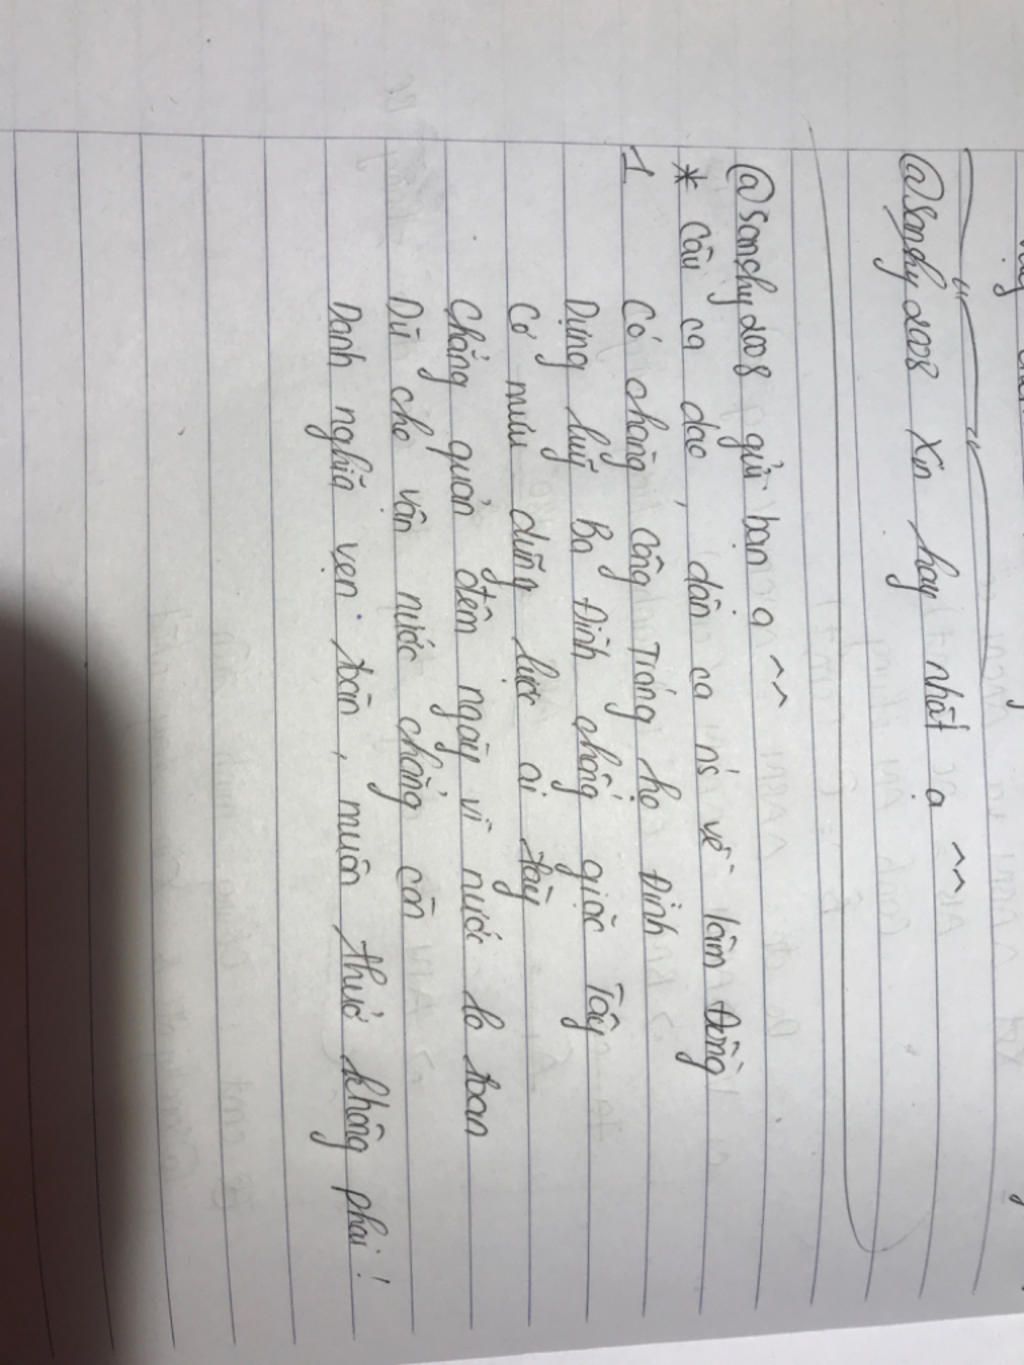 @sanchy2008 xin hay nhất ạ ^^
@sanchy2008 gửi bạn ạ ^^
* Câu ca dao, dân ca nó về Lâm Đồng
1 Có chàng Công Tráng họ Đinh
Dựng luỹ Ba Đình chống giặc Tây
Cơ mưu dũng lược ai tày
Chẳng quản đêm ngày vì nước lo toan
Dù cho vận nước chẳng còn
Danh nghĩa vẹn toàn, muôn thuở không phai!